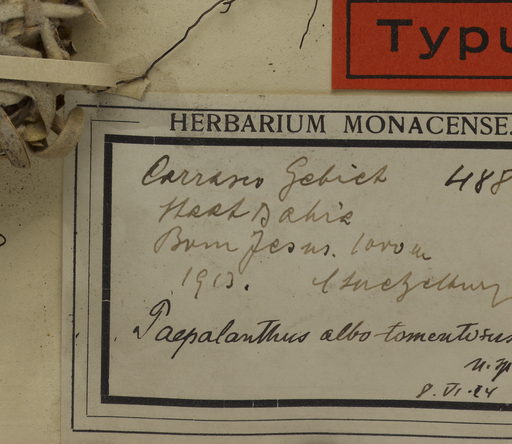 Typu
HERBARIUM MONACENSE.
Carrasco Gebiet 488
Staat Bahia
Bom Jesus. 1000 m
1913. Luetzelburg
Paepalanthus albo-tomentosus
n. sp
8. VI. 24